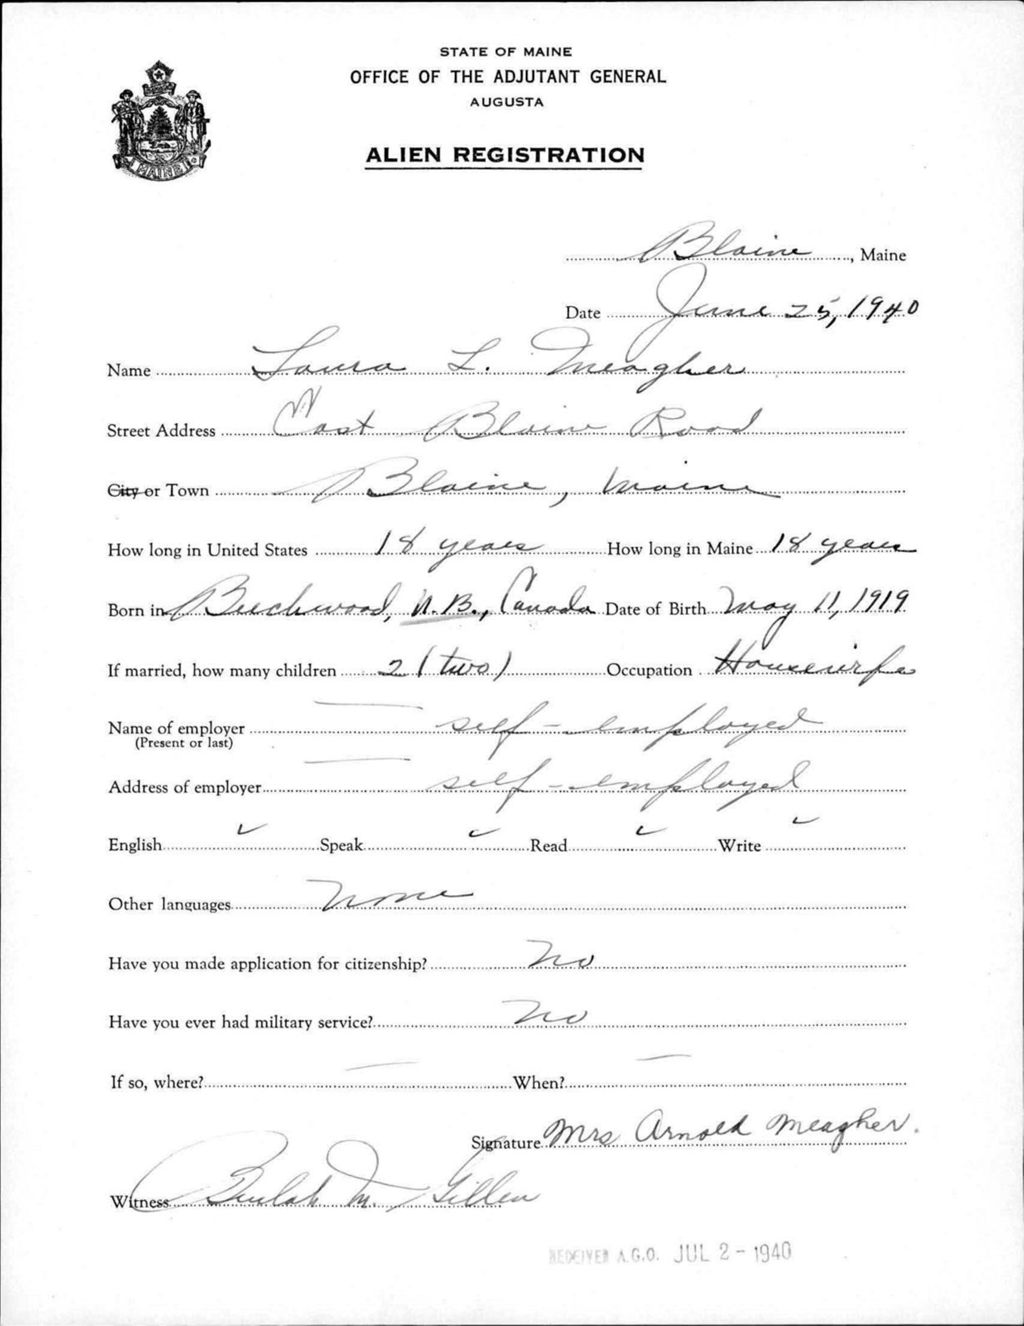 STATE OF MAINE
OFFICE OF THE ADJUTANT GENERAL
AUGUSTA
ALIEN REGISTRATION
MAINE
Blaine, Maine
Date June 25, 1940
Name Laura L. Meagher
Street Address East Blaine Road
City or Town Blaine, Maine
How long in United States 18 years How long in Maine 18 years
Born in Beechwood, N.B., Canada Date of Birth May 11, 1919
If married, how many children 2 (two) Occupation Housewife
Name of employer — self-employed
(Present or last)
Address of employer — self-employed
English ✓ Speak ✓ Read ✓ Write ✓
Other languages none
Have you made application for citizenship? No
Have you ever had military service? No
If so, where? — When? —
Signature Mrs Arnold Meagher.
Witness Beulah M. Gillen
RECEIVED A.G.O. JUL 2 - 1940